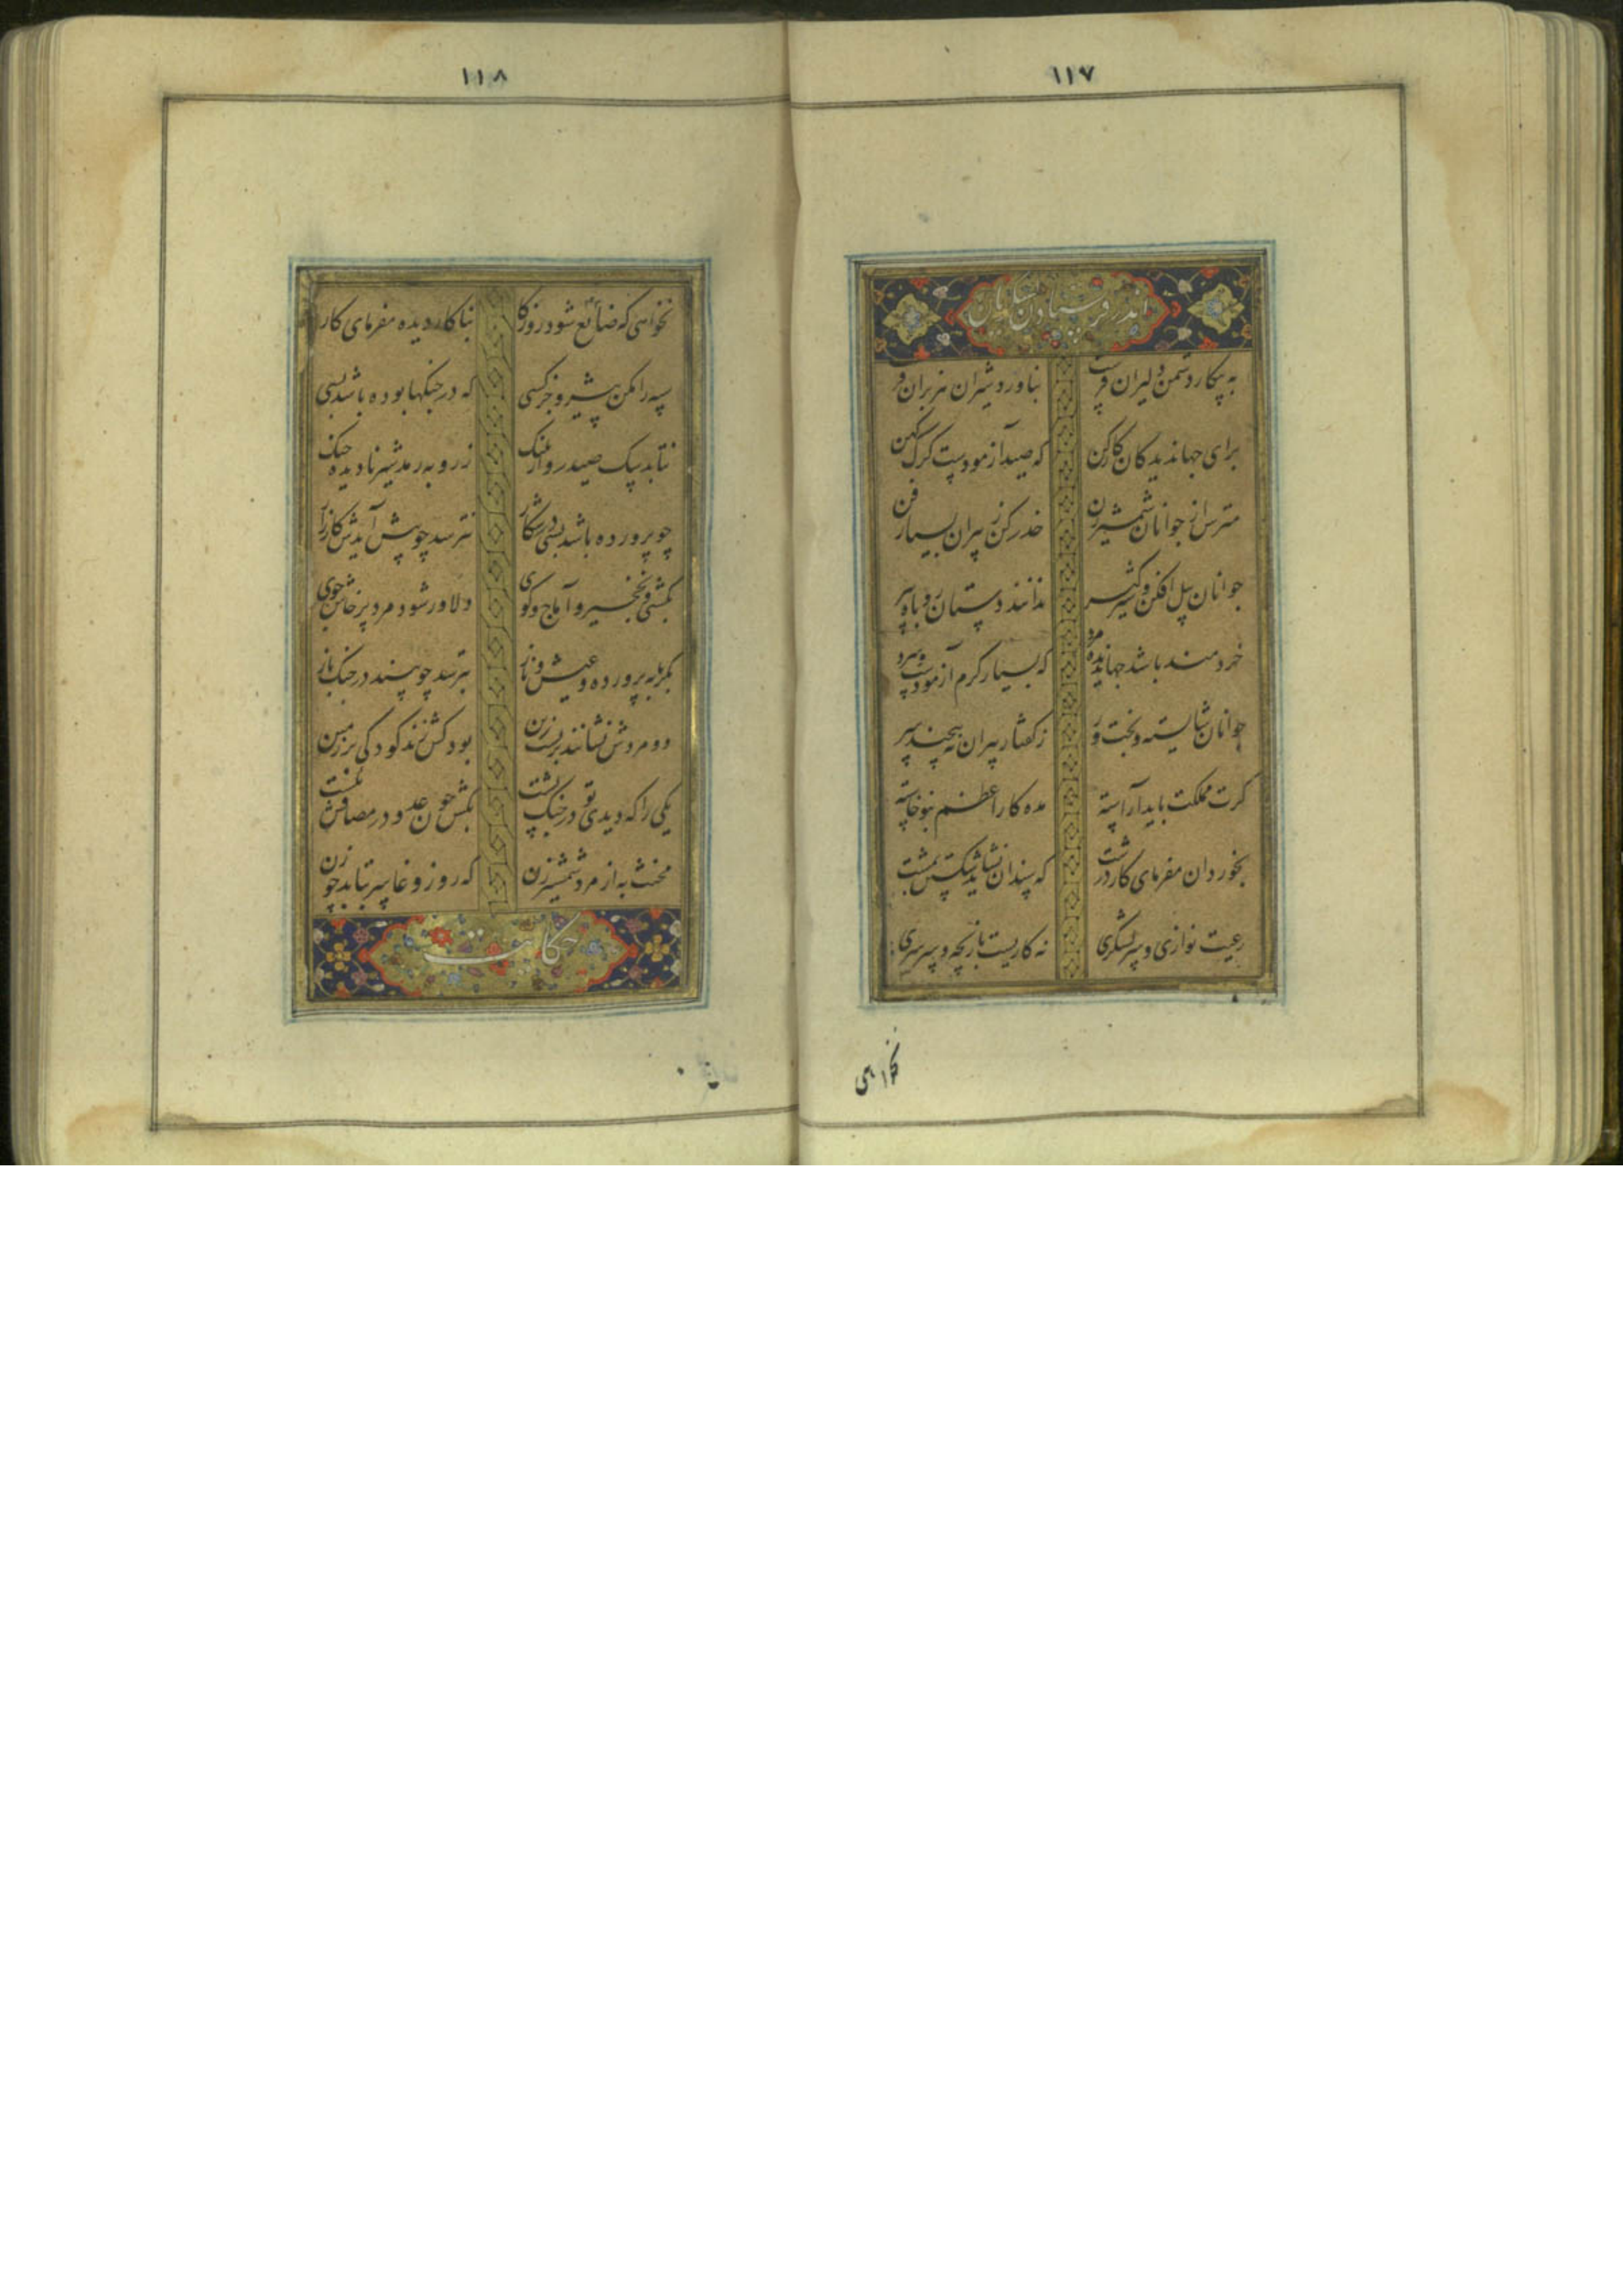 ١١٧
اندر فرستادن لشکریان
به پیکار دشمن دلیران فرست بناورد شیران هژبران فر
برای جهاندیدگان کار کن که صید آزمودست کرک کهن
مترس از جوانان شمشیر زن حذر کن ز پیران بسیار فن
جوانان پیل افکن و شیر کیر ندانند دستان روباه پیر
خردمند باشد جهاندیده مرد که بسیار کرم آزمودست و سرد
جوانان شایسته و بخت ور ز کفتار پیران نه پیچند سر
کرت مملکت باید آراسته مده کار اعظم بنوخاسته
بخوردان مفرمای کار درشت که سندان نشاید شکستن بمشت
رعیت نوازی و سر لشکری نه کاریست بازیچه و سرسری
نخواهی
١١٨
نخواهی که ضائع شود روزکا بنا کار دیده مفرمای کار
سپه را مکن پیشرو جز کسی که در جنکها بوده باشد بسی
نتابد سک صید رو از پلنک ز روبه رمد شیر نادیده جنک
چو پرورده باشد بسی در شکار نترسد چو پیش آیدش کارزار
بکشتی و نخجیر و آماج و کوی دلاور شود مرد پرخاش جوی
بکرمابه پرورده و عیش و ناز بترسد چو بیند در جنک باز
دو مردش نشانند بر پشت زین بود کش زند کودکی بر زمین
یکی را که دیدی تو در جنک پشت بکش چون عدو در مصافش نکشت
مخنث به از مرد شمشیر زن که روز وغا سر بتابد چو زن
حکایت